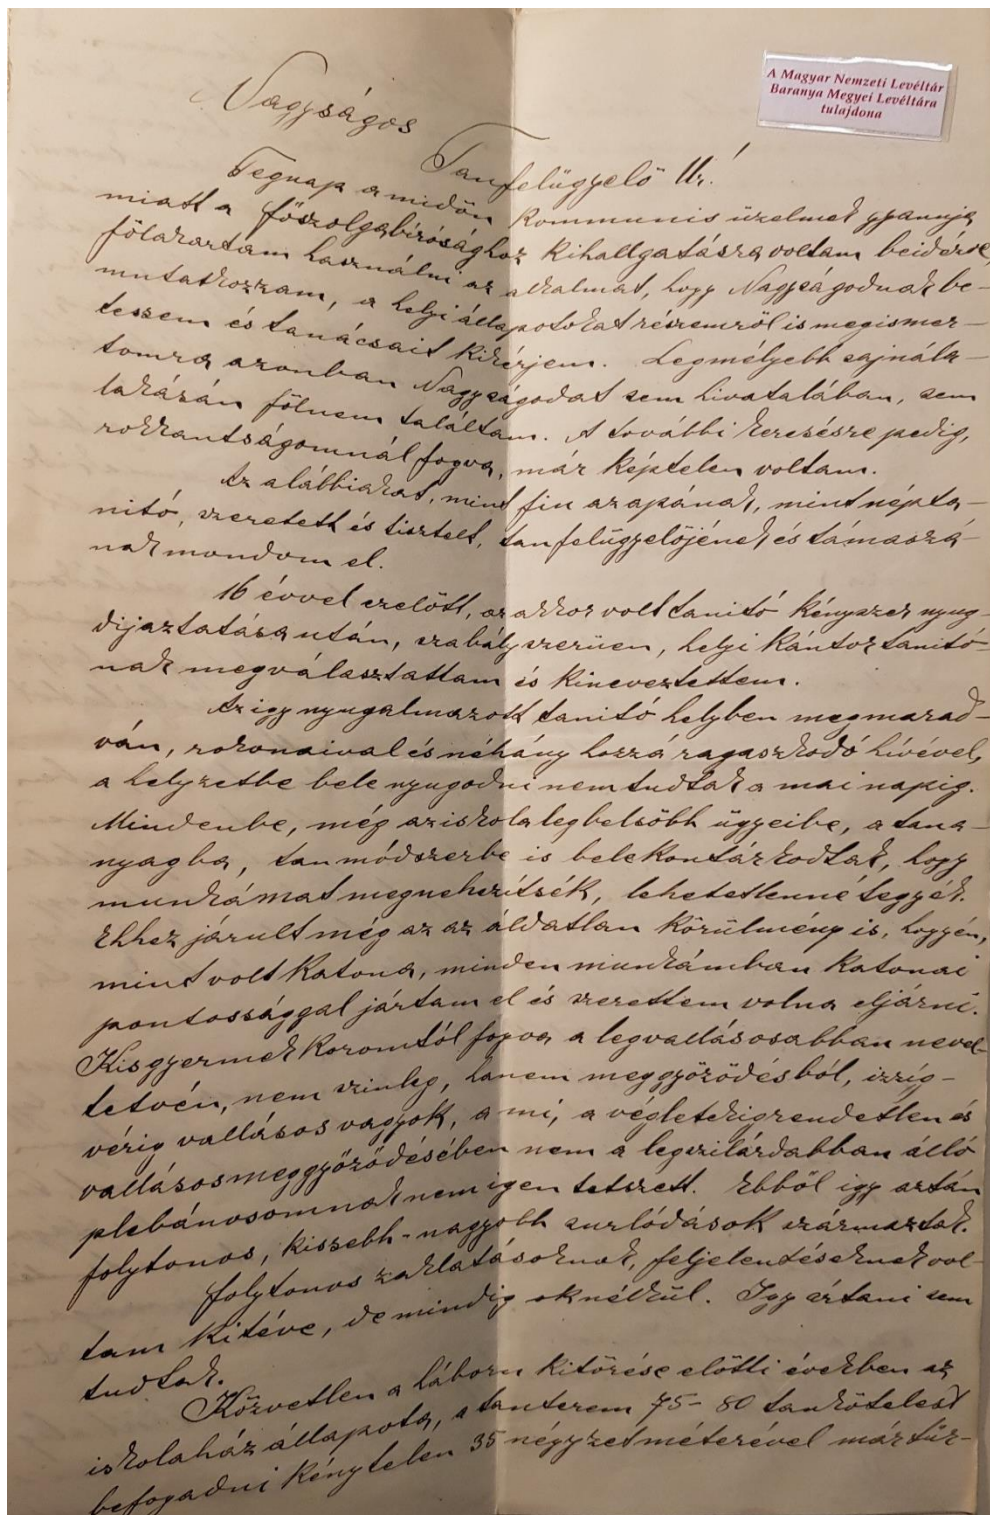 A Magyar Nemzeti Levéltár
Baranya Megyei Levéltára
tulajdona
Nagyságos
Tanfelügyelő Úr!
Tegnap a midőn kommunis üzelmek gyanuja
miatt a főszolgabírósághoz kihallgatásra voltam beidézve,
fölakartam használni az alkalmat, hogy Nagyságodnak be-
mutatkozzam, a helyi állapotokat részemről is megismer-
tessem és tanácsait kikérjem. Legmélyebb sajnála-
tomra azonban Nagyságodat sem hivatalában, sem
lakásán fölnem találtam. A további keresésre pedig,
rokkantságomnál fogva, már képtelen voltam.
Az alábbiakat, mint fiu az apának, mint népta-
nitó, szeretett és tisztelt, tanfelügyelőjének és támaszá-
nak mondom el.
16 évvel ezelőtt, az akkor volt tanitó kényszer nyug-
dijaztatása után, szabályszerüen, helyi kántortanitó-
nak megválasztattam és kineveztettem.
Az igy nyugalmazott tanitó helyben megmarad-
ván, rokonaival és néhány hozzá ragaszkodó hívével,
a helyzetbe bele nyugodni nem tudtak a mai napig.
Mindenbe, még az iskola legbelsőbb ügyeibe, a tana-
nyagba, tanmódszerbe is belekontárkodtak, hogy
munkámat megnehezítsék, lehetetlenné tegyék.
Ehhez járult még az az áldatlan körülmény is, hogy én,
mint volt katona, minden munkámban katonai
pontossággal jártam el és szerettem volna eljárni.
Kisgyermek koromtól fogva a legvallásosabban nevel-
tetvén, nem szinleg, hanem meggyőződésből, izzig-
vérig vallásos vagyok, a mi, a végletekig rendetlen és
vallásos meggyőződésében nem a legszilárdabban álló
plebánosomnak nem igen tetszett. Ebből igy aztán
folytonos, kissebb-nagyobb surlódások származtak.
Folytonos zaklatásoknak, feljelentéseknek vol-
tam kitéve, de mindig ok nélkül. Igy ártani sem
tudtak.
Közvetlen a háboru kitörése előtti években az
iskolaház állapota, a tanterem 75-80 tankötelest
befogadni kénytelen 35 négyzetméterével már tür-